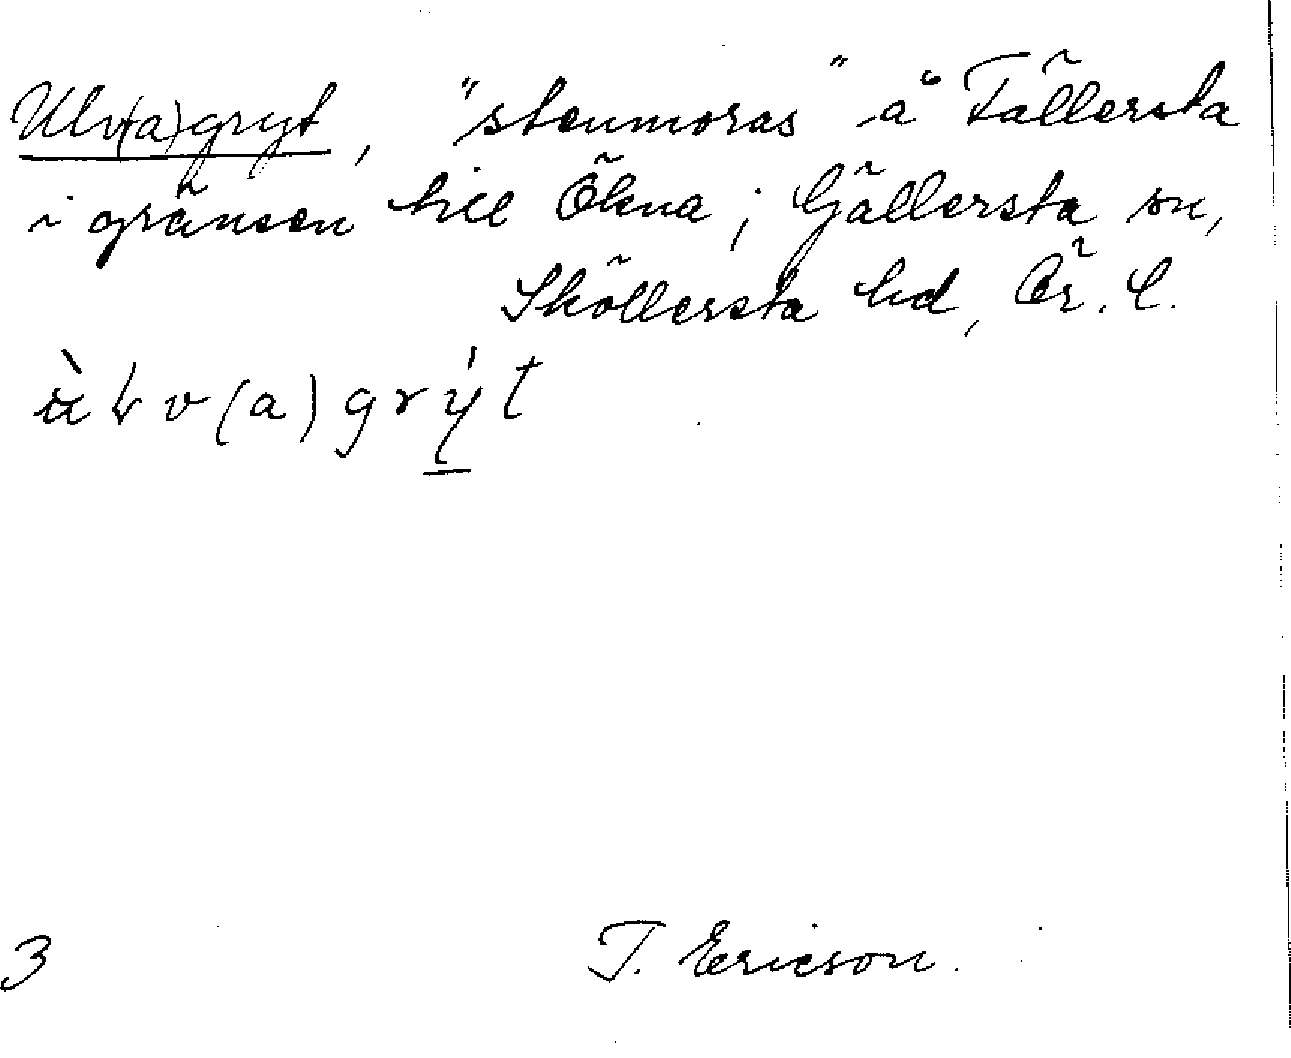 Ulv(a)gryt, "stenmoras" å Tällersta
i gränsen till Ökna; Gällersta sn,
Sköllersta hd, Ör. l.
v(a)grýt
3 T. Ericson.